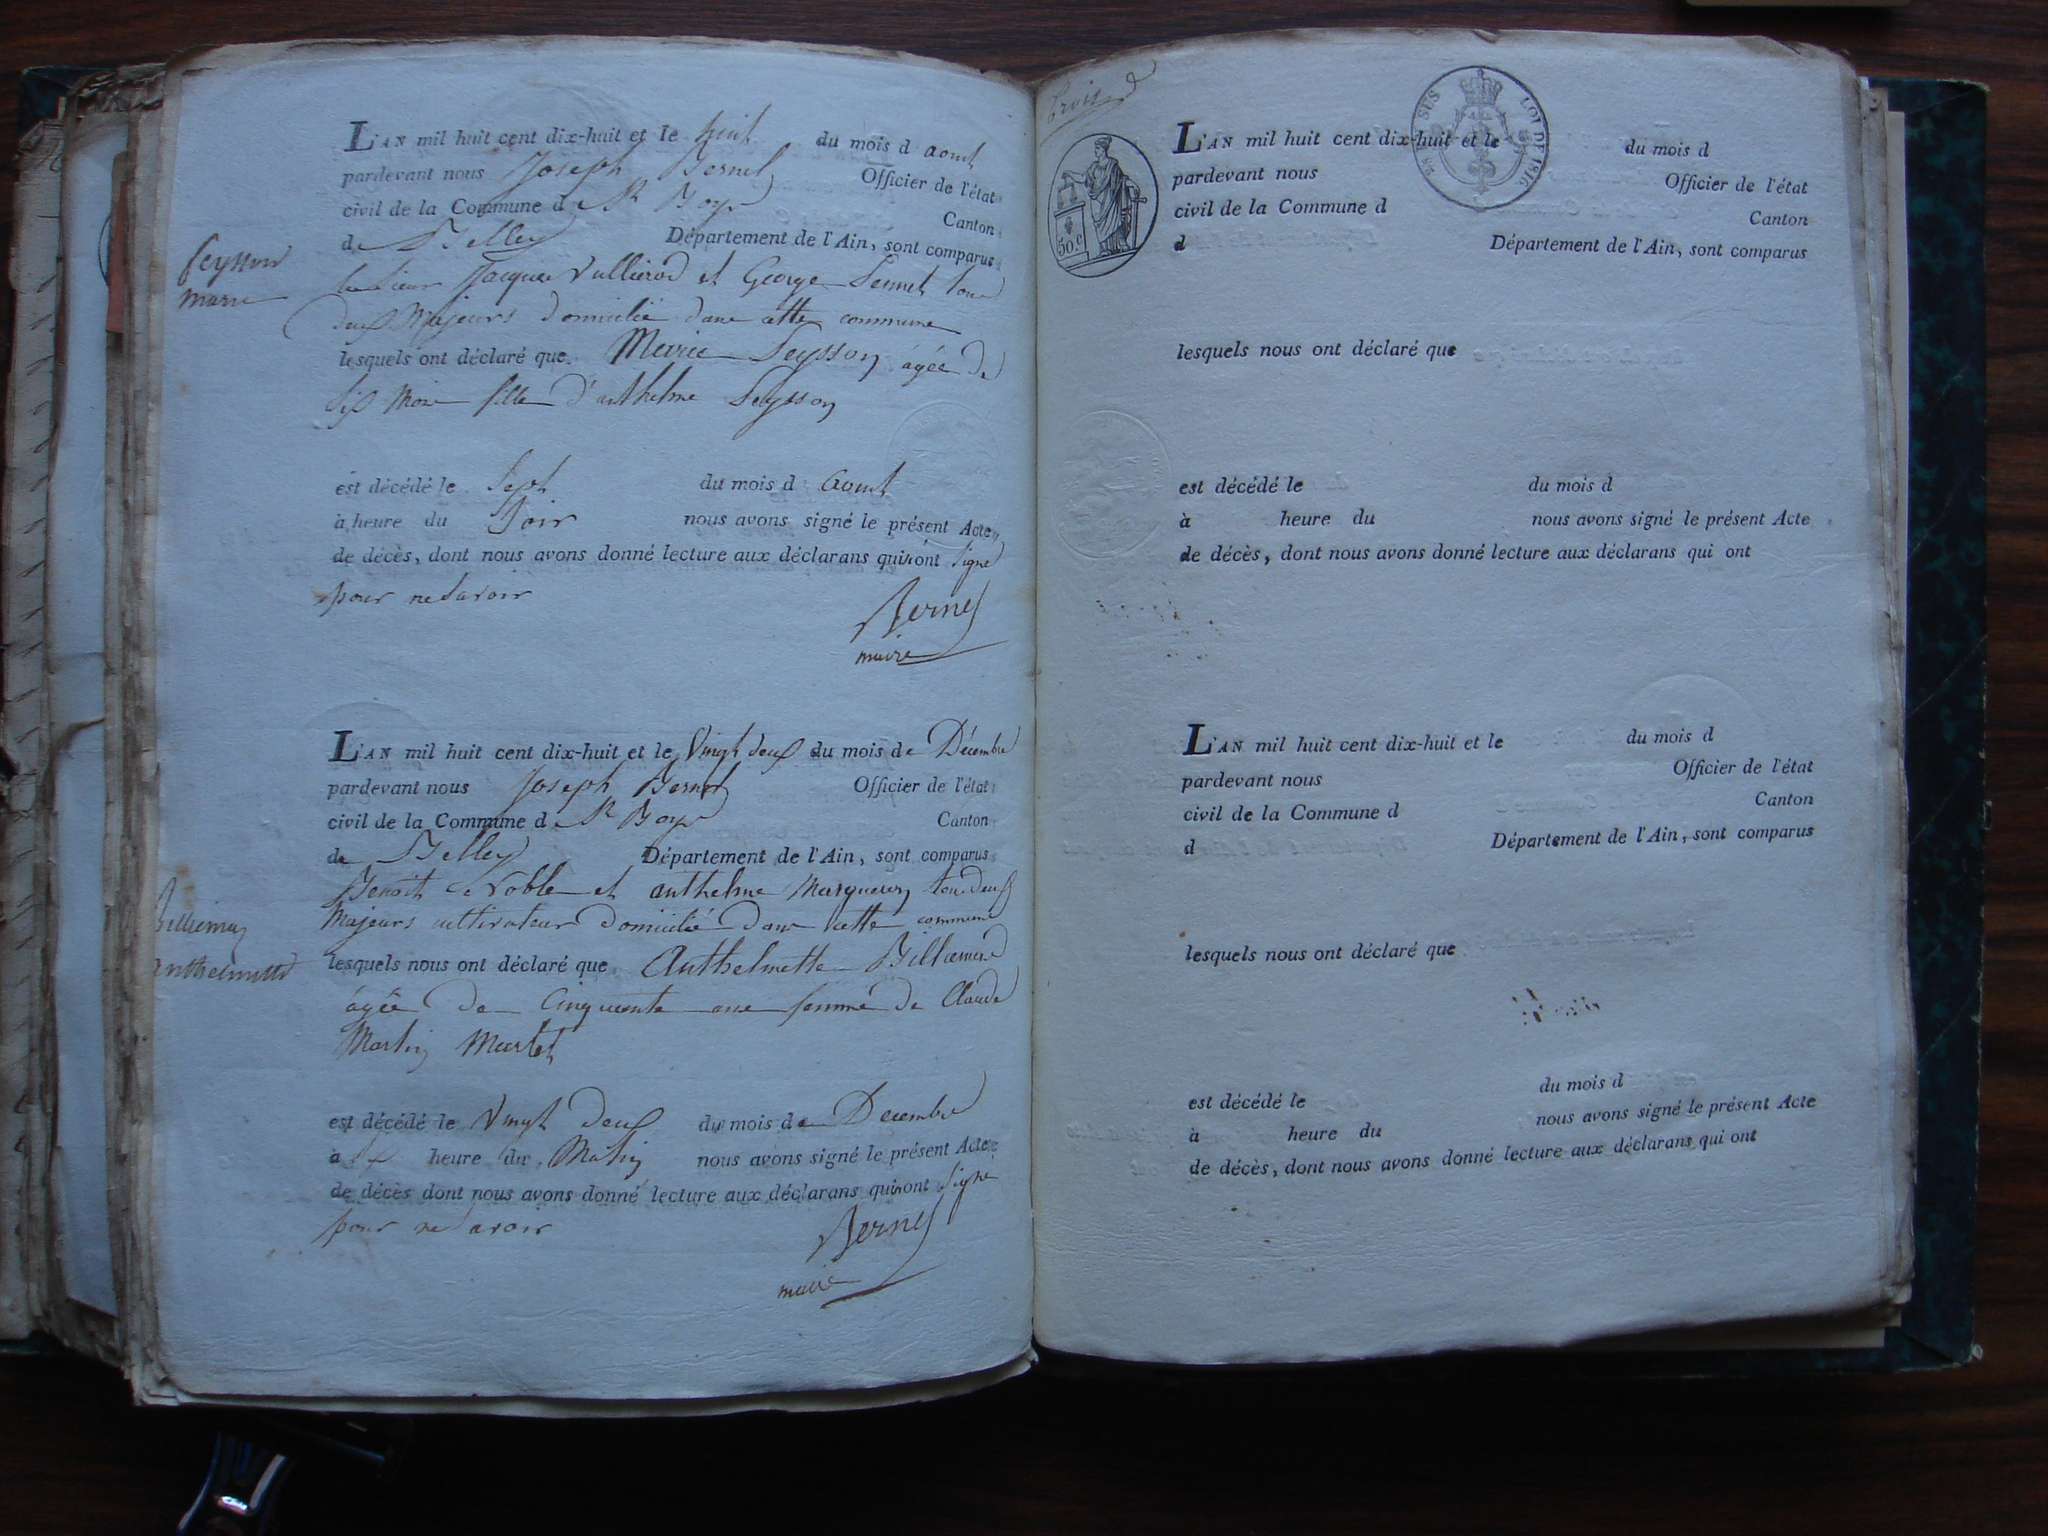 L'AN mil huit cent dix-huit et le huit du mois d aout
pardevant nous Joseph Bernet Officier de l'état
civil de la Commune de St Boys Canton
de Belley Département de l'Ain, sont comparus
Seysson
marie
les sieur Jacques Vullierod et George tous
deux Majeurs domicilié dans cette commune
lesquels ont déclaré que Marie Seysson agée de
six mois fille d'anthelme Seysson
est décédé le sept du mois d aout
à heure du Soir nous avons signé le présent Acte
de décès, dont nous avons donné lecture aux déclarans qui n'ont signé
pour ne savoir
Bernet
maire
L'AN mil huit cent dix-huit et le vingt deux du mois de Décembre
pardevant nous Joseph Bernet Officier de l'état
civil de la Commune de St Boys Canton
de Belley Département de l'Ain, sont comparus
Benoit et anthelme Marqueron tou deux
Majeurs cultivateur domicilié dans cette commune
Billiemaz
anthelmette
lesquels nous ont déclaré que Anthelmette Billiemaz
agée de Cinquante ans femme de Claude
Martin Martel
est décédé le vingt deux du mois de Decembre
à heure du Matin nous avons signé le présent Acte
de décès dont nous avons donné lecture aux déclarans qui n'ont signé
pour ne savoir
Bernet
maire
trois
50.c
LOI DE 1816
L'AN mil huit cent dix-huit et le du mois d
pardevant nous Officier de l'état
civil de la Commune d Canton
d Département de l'Ain, sont comparus
lesquels nous ont déclaré que
est décédé le du mois d
à heure du nous avons signé le présent Acte
de décès, dont nous avons donné lecture aux déclarans qui ont
L'AN mil huit cent dix-huit et le du mois d
pardevant nous Officier de l'état
civil de la Commune d Canton
d Département de l'Ain, sont comparus
lesquels nous ont déclaré que
est décédé le du mois d
à heure du nous avons signé le présent Acte
de décès, dont nous avons donné lecture aux déclarans qui ont